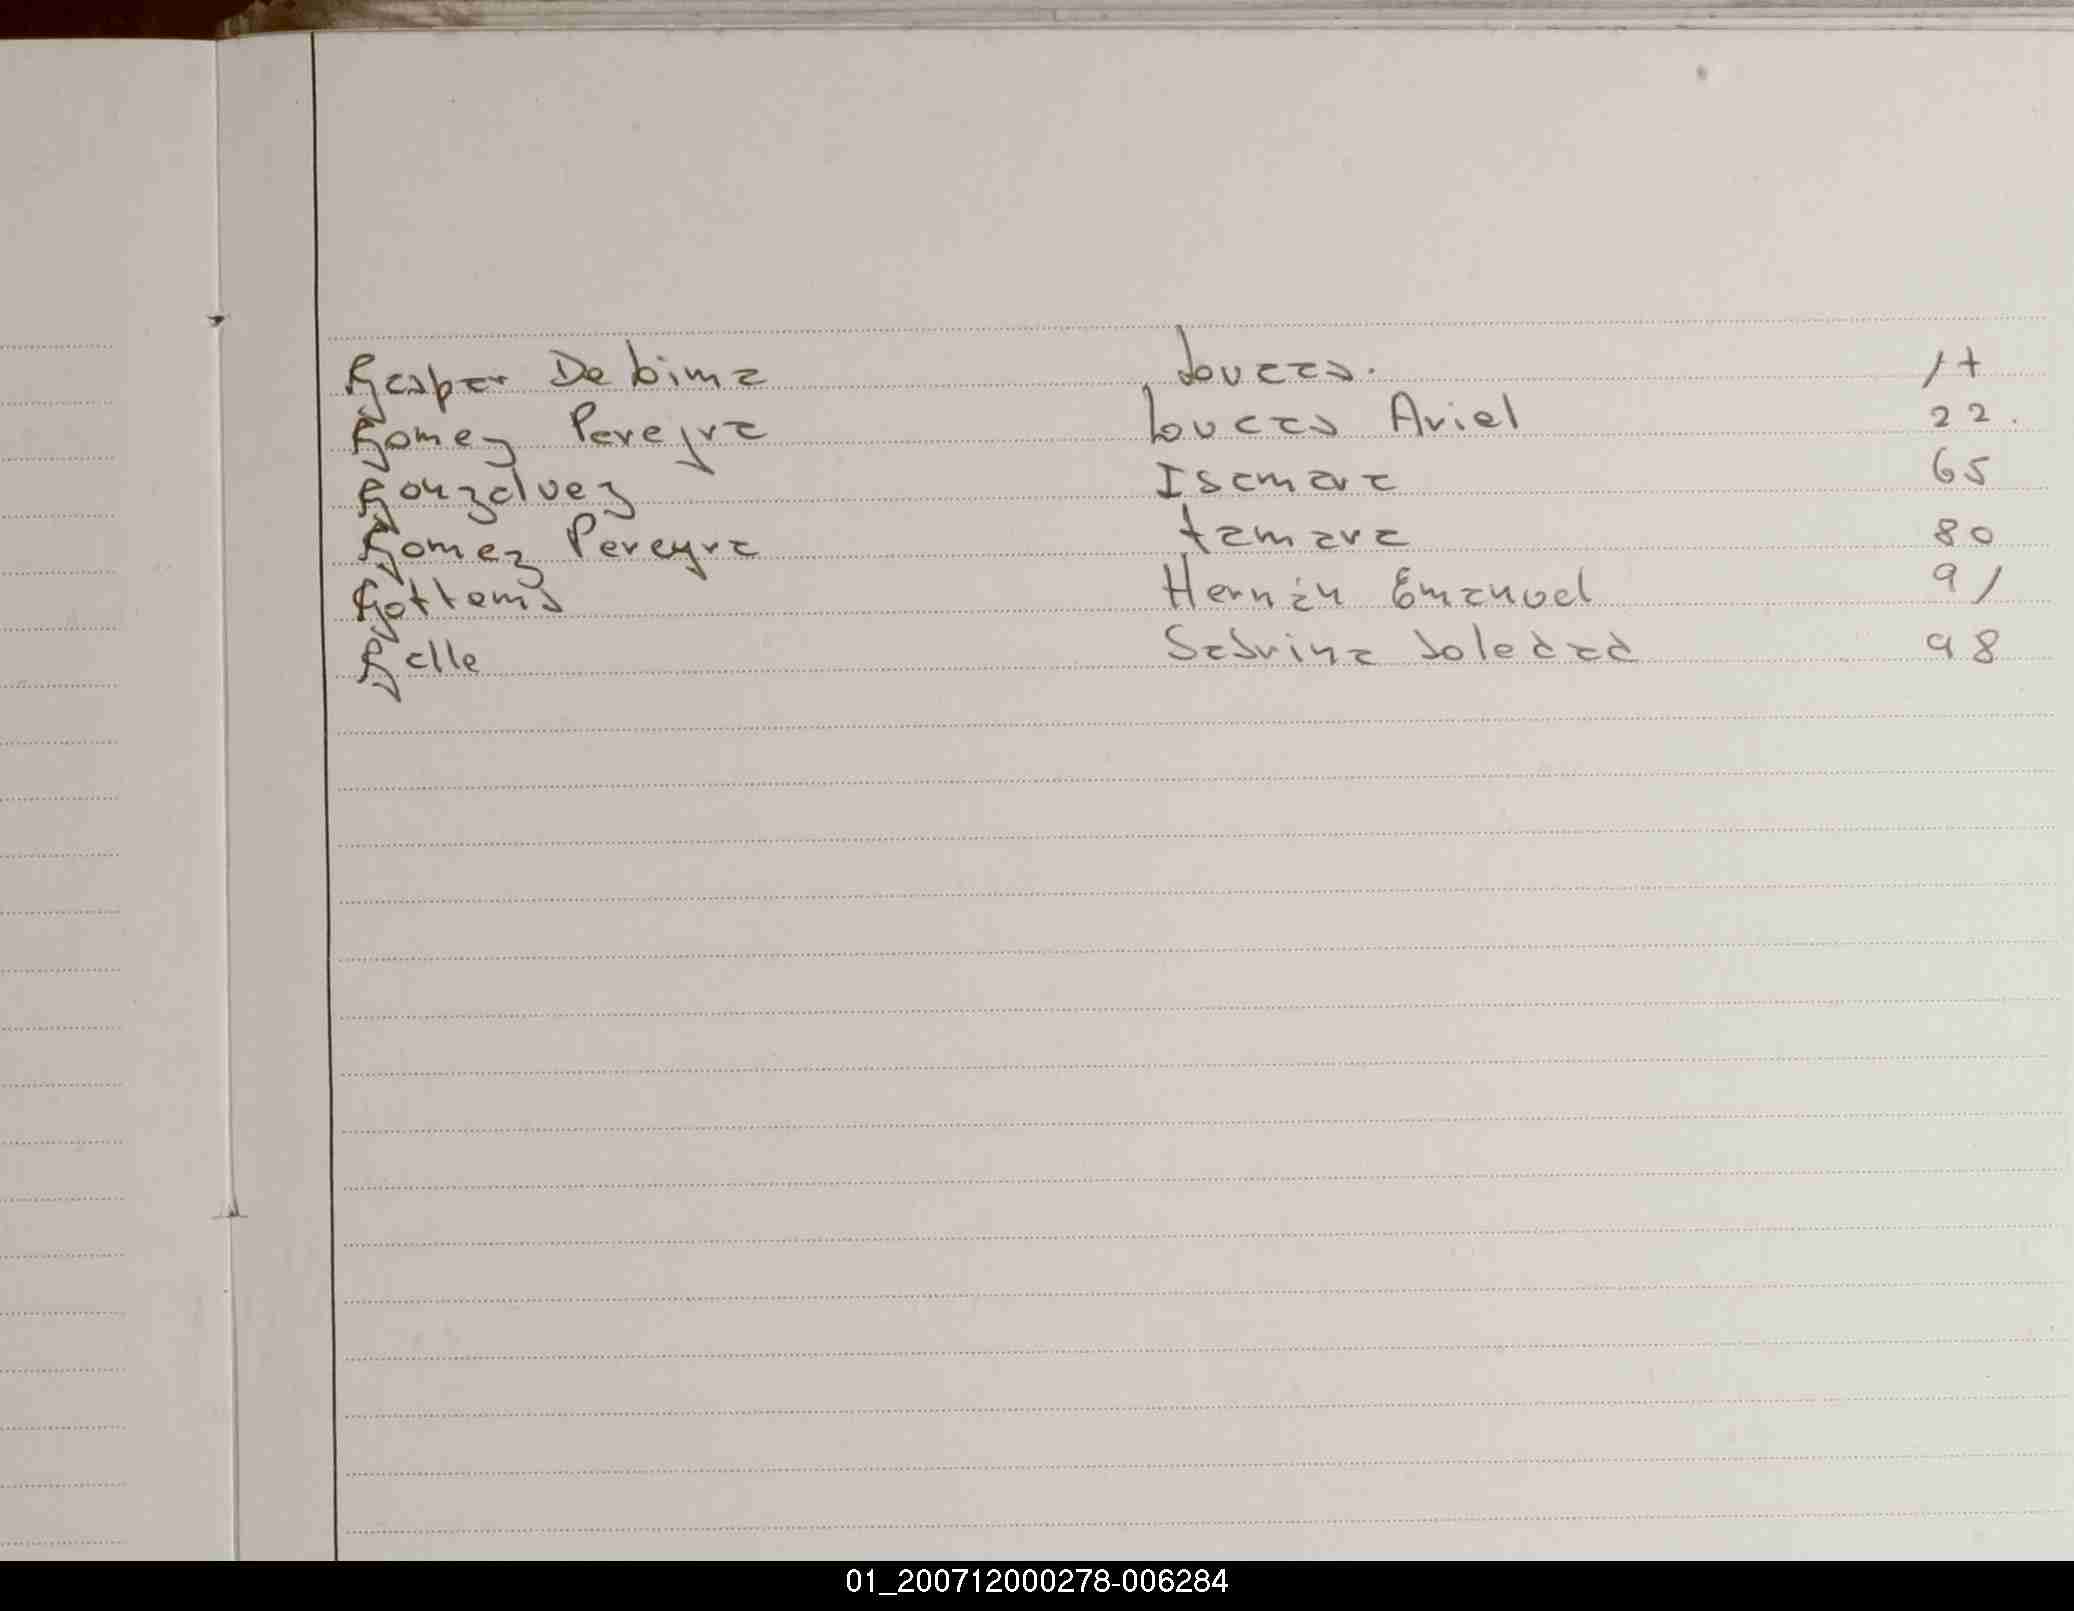 Gaspar De bima Loucas. 17
Gomez Pereyra Loucas Ariel 22.
Gonzalvez Isamara 65
Gomez Pereyra tamara 80
Gottems Hernán Emanuel 91
Galle Sabrina Soledad 98
01_200712000278-006284